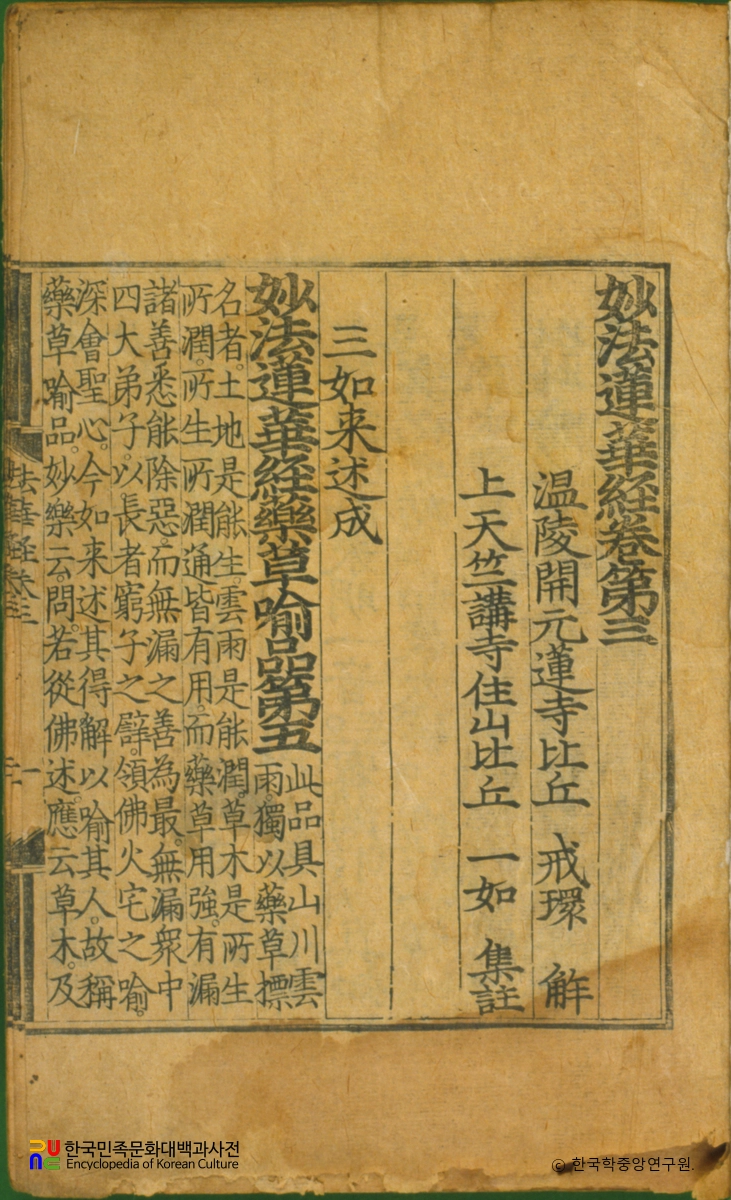 妙法蓮華経卷第三
温陵開元蓮寺比丘 戒環 解
上天竺講寺住山比丘 一如 集註
三如来述成
妙法蓮華経藥草喻品第五
此品具山川雲
雨。獨以藥草標
名者。土地是能生。雲雨是能潤。草木是所生
所潤。所生所潤通皆有用。而藥草用強。有漏
諸善悉能除惡。而無漏之善為最。無漏衆中
四大弟子。以長者窮子之譬。領佛火宅之喻。
深會聖心。今如来述其得解以喻其人。故稱
藥草喻品。妙樂云。問。若從佛述。應云草木。及
法華経卷三
한국민족문화대백과사전
Encyclopedia of Korean Culture
© 한국학중앙연구원.